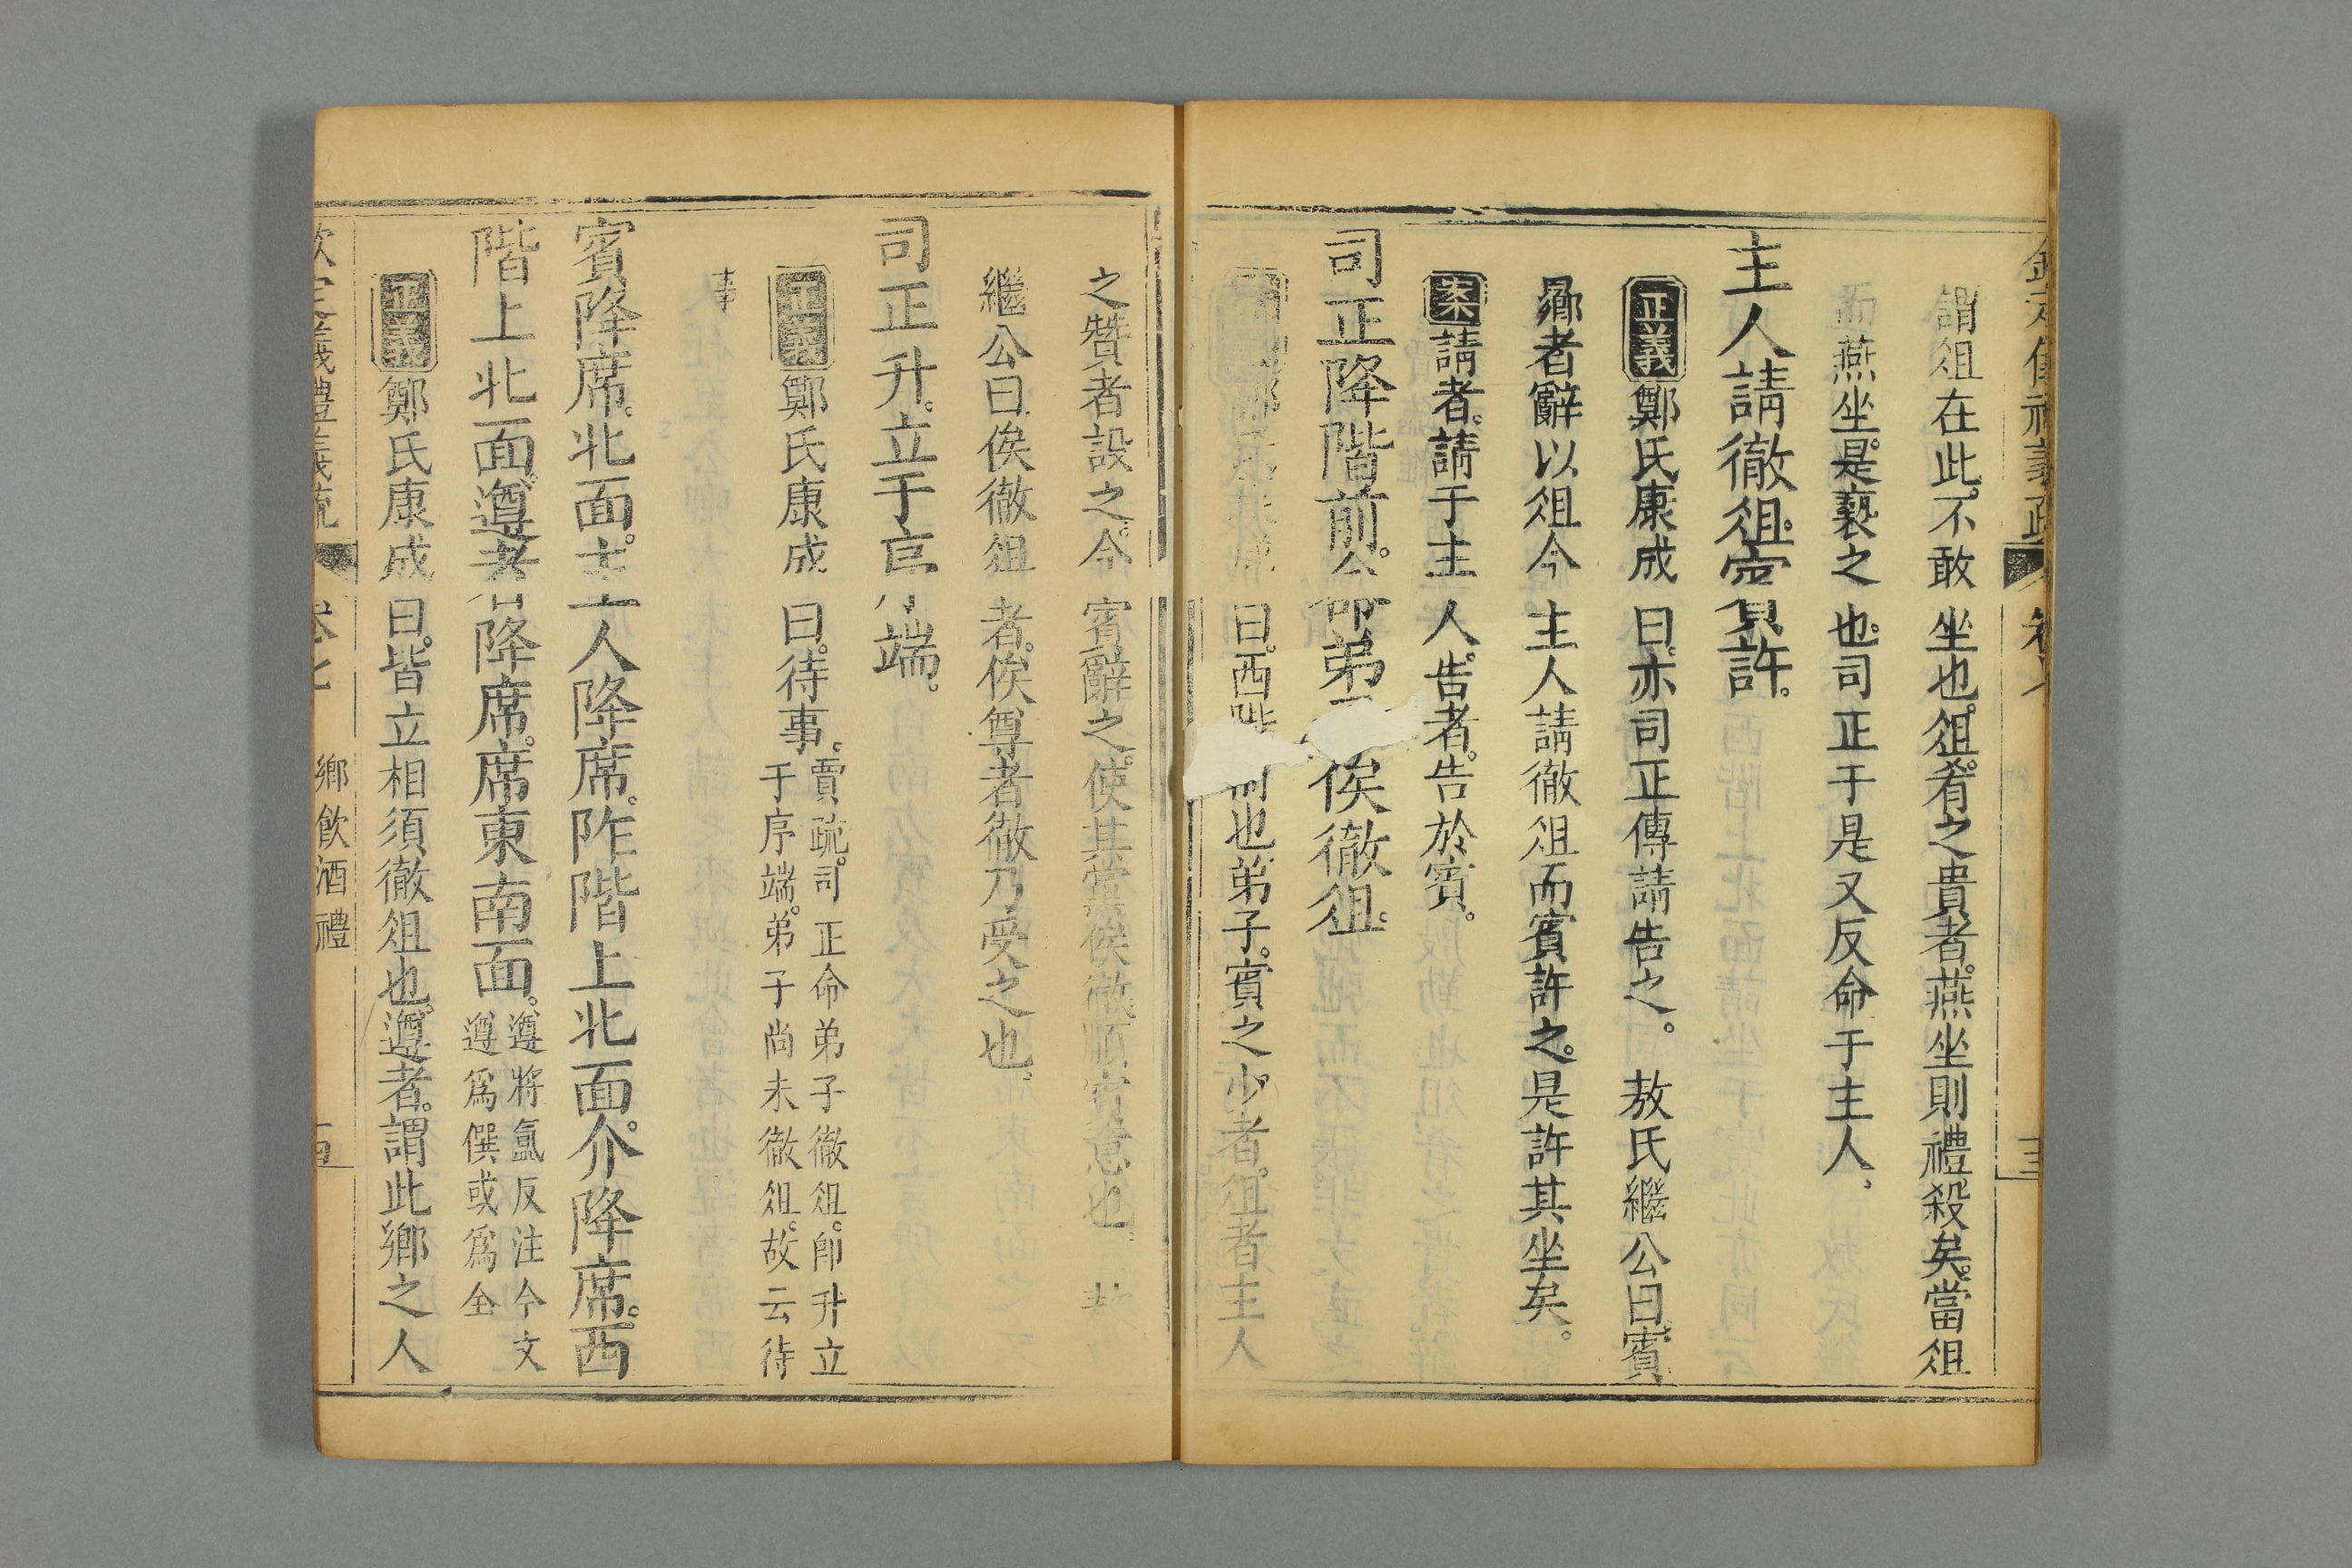 謂俎在此。不敢坐也。俎。肴之貴者。燕坐則禮殺矣。當俎
而燕坐。是褻之也。司正于是又反命于主人。
主人請徹俎。賓許。
正義鄭氏康成曰。亦司正傳請告之。 敖氏繼公曰。賓
鄉者辭以俎。今主人請徹俎。而賓許之。是許其坐矣。
案請者。請于主人。告者。告於賓。
司正降階前。命弟俟徹俎。
曰。西也。弟子。賓之少者。俎者主人
之贊者設之。今賓辭之。使其黨俟徹。順賓意也。
繼公曰。俟徹俎者。俟尊者徹乃受之也。
司正升。立于序端。
正義鄭氏康成曰。待事。賈疏。司正命弟子徹俎。即升立
于序端。弟子尚未徹俎。故云待
事
賓降席。北面。主人降席。阼階上北面。介降席。西
階上北面。遵者降席。席東南面。遵將氲反注今文
遵爲僎或爲全
正義鄭氏康成曰。皆立相須徹俎也。遵者。謂此鄉之人
鄉飲酒禮